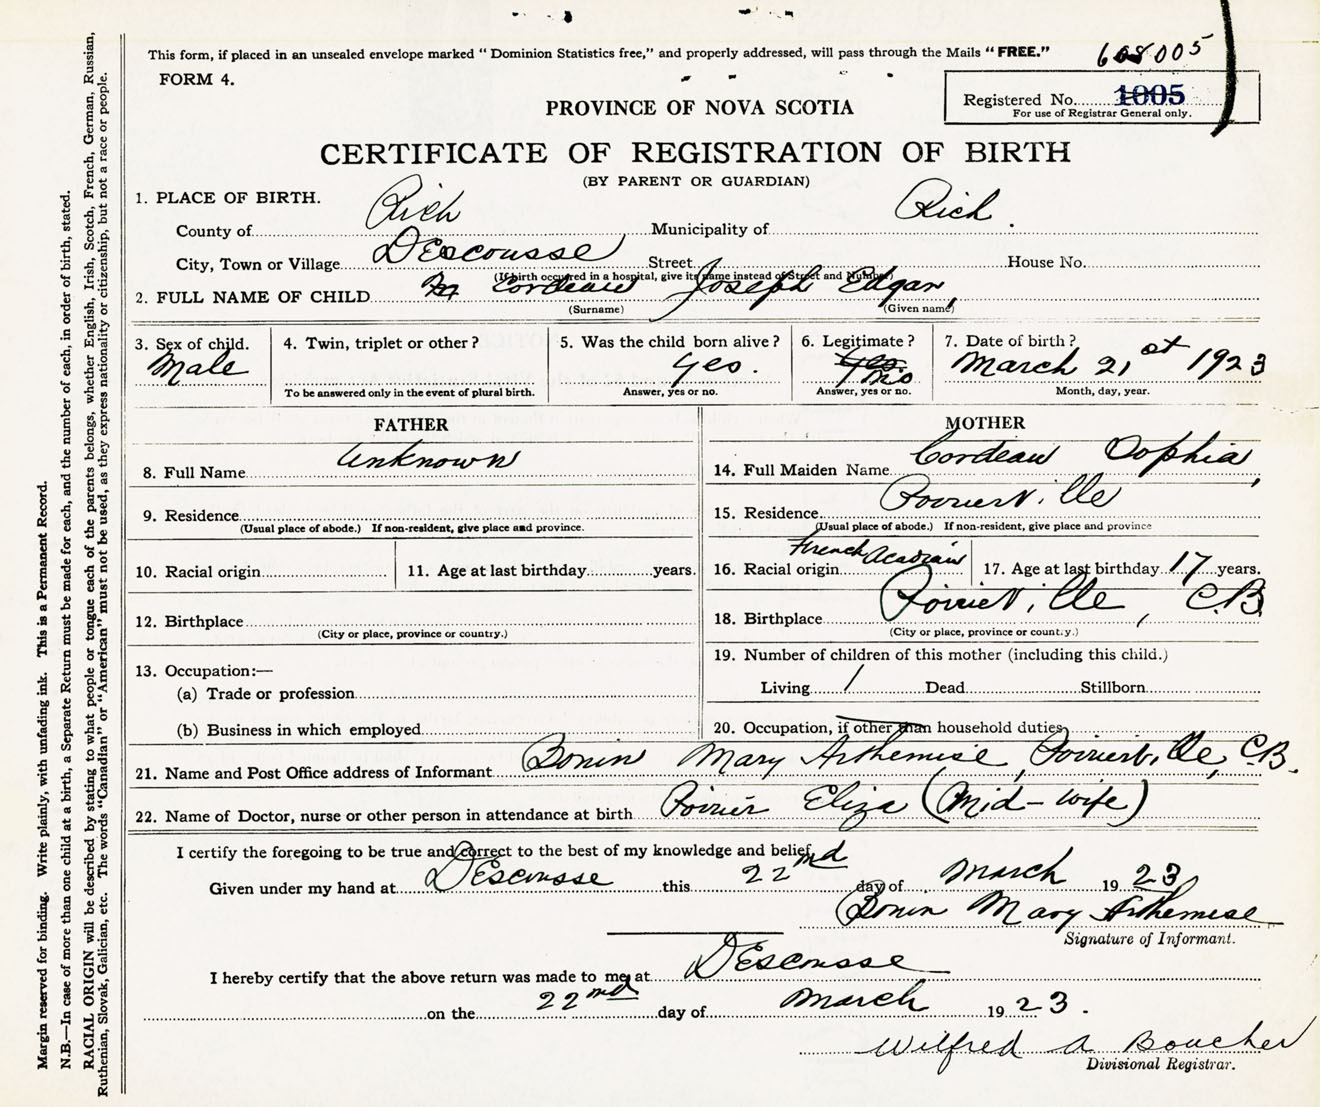 This form, if placed in an unsealed envelope marked "Dominion Statistics free," and properly addressed, will pass through the Mails "FREE."
FORM 4.
PROVINCE OF NOVA SCOTIA
Registered No. 1005
For use of Registrar General only.
CERTIFICATE OF REGISTRATION OF BIRTH
(BY PARENT OR GUARDIAN)
1. PLACE OF BIRTH.
County of Rich Municipality of Rich.
City, Town or Village DEscousse Street House No.
(If birth occurred in a hospital, give its name instead of Street and Number)
2. FULL NAME OF CHILD Cordeau Joseph Edgar,
(Surname) (Given name)
3. Sex of child. Male
4. Twin, triplet or other?
To be answered only in the event of plural birth.
5. Was the child born alive? yes.
Answer, yes or no.
6. Legitimate? yes. no
Answer, yes or no.
7. Date of birth? March 21st 1923
Month, day, year.
FATHER
8. Full Name Unknown
9. Residence
(Usual place of abode.) If non-resident, give place and province.
10. Racial origin 11. Age at last birthday years.
12. Birthplace
(City or place, province or country.)
13. Occupation:—
(a) Trade or profession
(b) Business in which employed
MOTHER
14. Full Maiden Name Cordeau Sophia,
15. Residence Poirierville
(Usual place of abode.) If non-resident, give place and province
16. Racial origin French Acadian 17. Age at last birthday 17 years.
18. Birthplace Poirierville, C.B.
(City or place, province or country.)
19. Number of children of this mother (including this child.)
Living 1 Dead Stillborn
20. Occupation, if other than household duties
21. Name and Post Office address of Informant Bonin Mary Arthemise, Poirierville, C.B.
22. Name of Doctor, nurse or other person in attendance at birth Poirier Eliza (Mid-wife)
I certify the foregoing to be true and correct to the best of my knowledge and belief
Given under my hand at DEscousse this 22nd day of March 1923
Bonin Mary Arthemise
Signature of Informant.
I hereby certify that the above return was made to me at DEscousse
on the 22nd day of March 1923.
Wilfred A Boucher
Divisional Registrar.
Margin reserved for binding. Write plainly, with unfading ink. This is a Permanent Record.
N.B.—In case of more than one child at a birth, a Separate Return must be made for each, and the number of each, in order of birth, stated.
RACIAL ORIGIN will be described by stating to what people or tongue each of the parents belongs, whether English, Irish, Scotch, French, German, Russian,
Ruthenian, Slovak, Galician, etc. The words "Canadian" or "American" must not be used, as they express nationality or citizenship, but not a race or people.